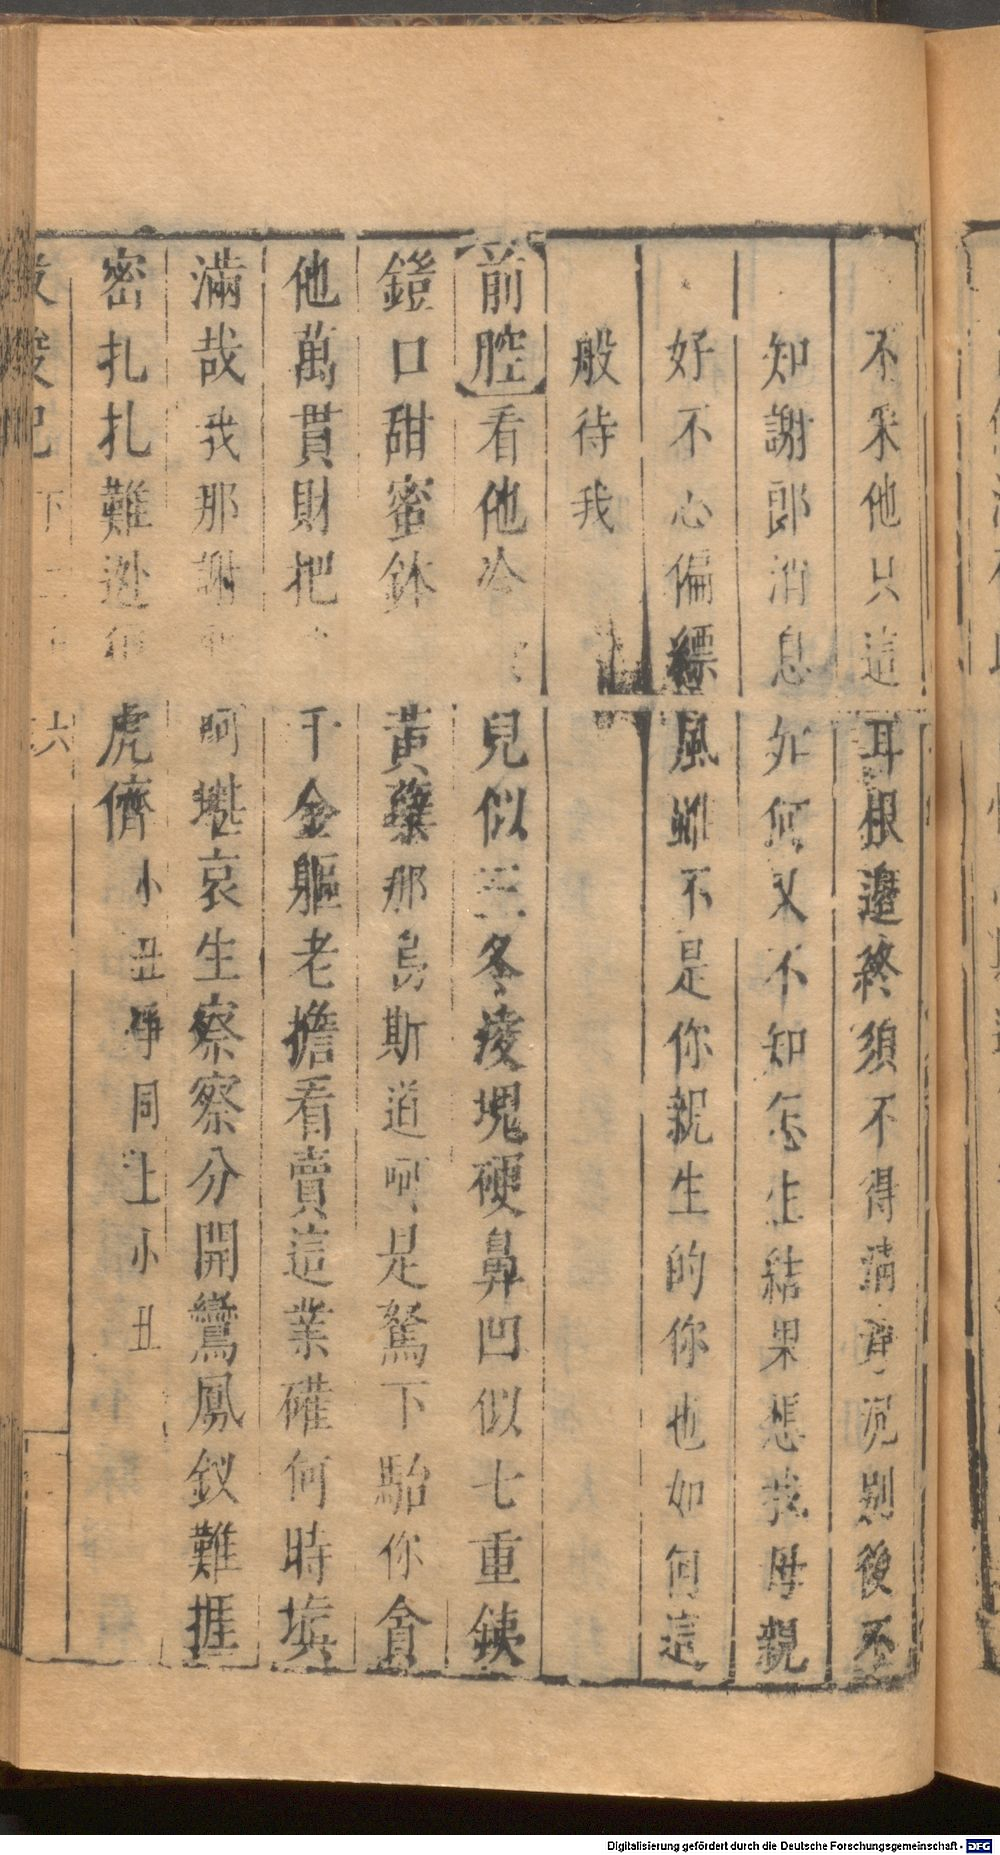 不采他只這耳根邊終須不得清净况别後不
知謝郎消息如何又不知怎生結果想我母親
好不心偏縹風雖不是你親生的你也如何這
般待我
前腔看他冷兒似三冬凌塊硬鼻凹似七重鉄
鐙口甜蜜鉢黃蘗那鳥斯道呵是駑下駘你貪
他萬貫財把千金軀老擔看賣這業確何時塡
滿哉我那謝呵堪哀生察察分開鸞鳳釵難捱
密扎扎難逃虎儕小丑净同上小丑
下 六
Digitalisierung gefördert durch die Deutsche Forschungsgemeinschaft - DFG